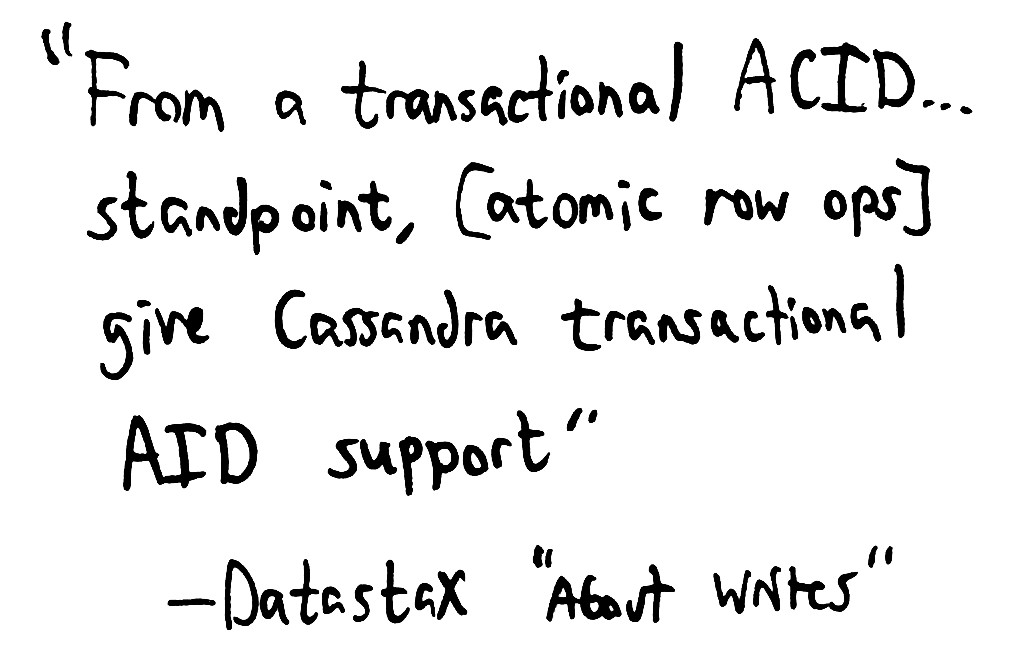 "From a transactional ACID...
standpoint, [atomic row ops]
give Cassandra transactional
AID support"
—Datastax "About Writes"